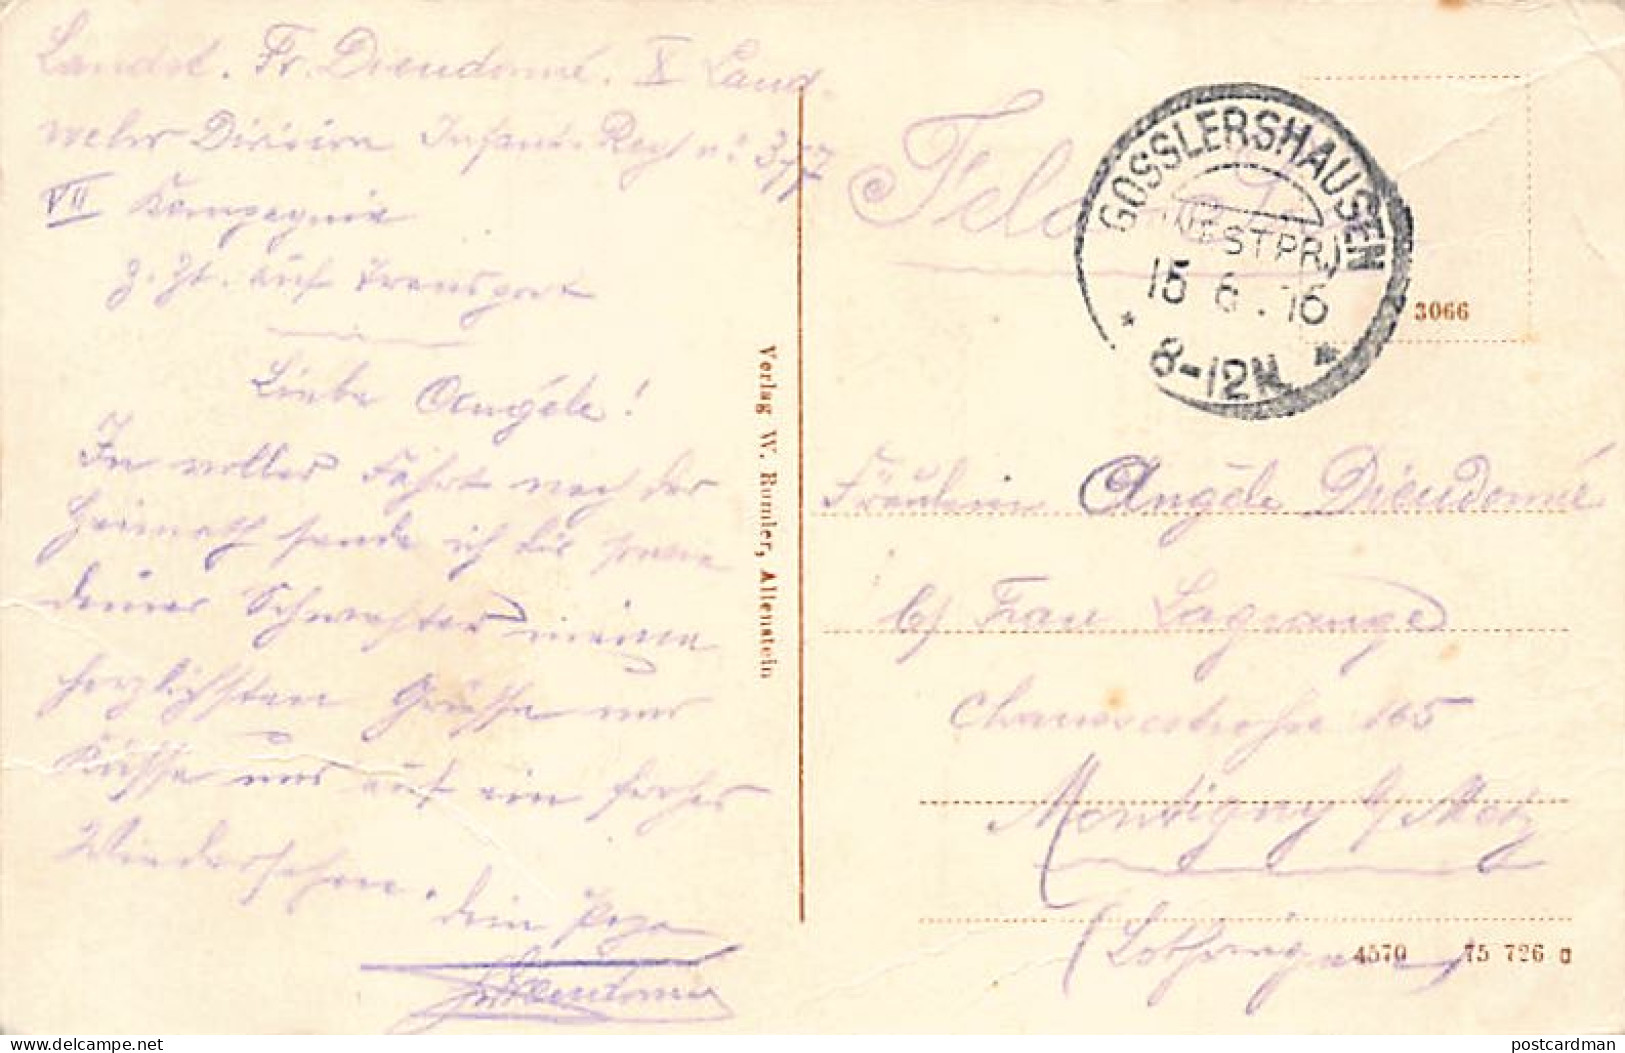 Landst. Fr. Dieudonné. X Land-
wehr Division Infant. Regt n: 377
VII Kompagnie
z. Zt. auf Transport
Liebe Angéle!
In voller Fahrt nach der
Heimath sende ich dir sowie
deiner Schwester meine
herzlichsten Grüsse und
Küsse und auf ein frohes
Wiedersehen.
dein Papa
Dieudonné
Verlag W. Rumler, Allenstein
Feld
GOSSLERSHAUSEN
(WESTPR.)
15 6.16
* 8-12N *
3066
Fräulein Angéle Dieudonné
b/ Frau Lagrange
Chausseestrasse 165
Montigny b/ Metz
(Lothringen)
4570 75 726 a
delcampe.net
postcardman